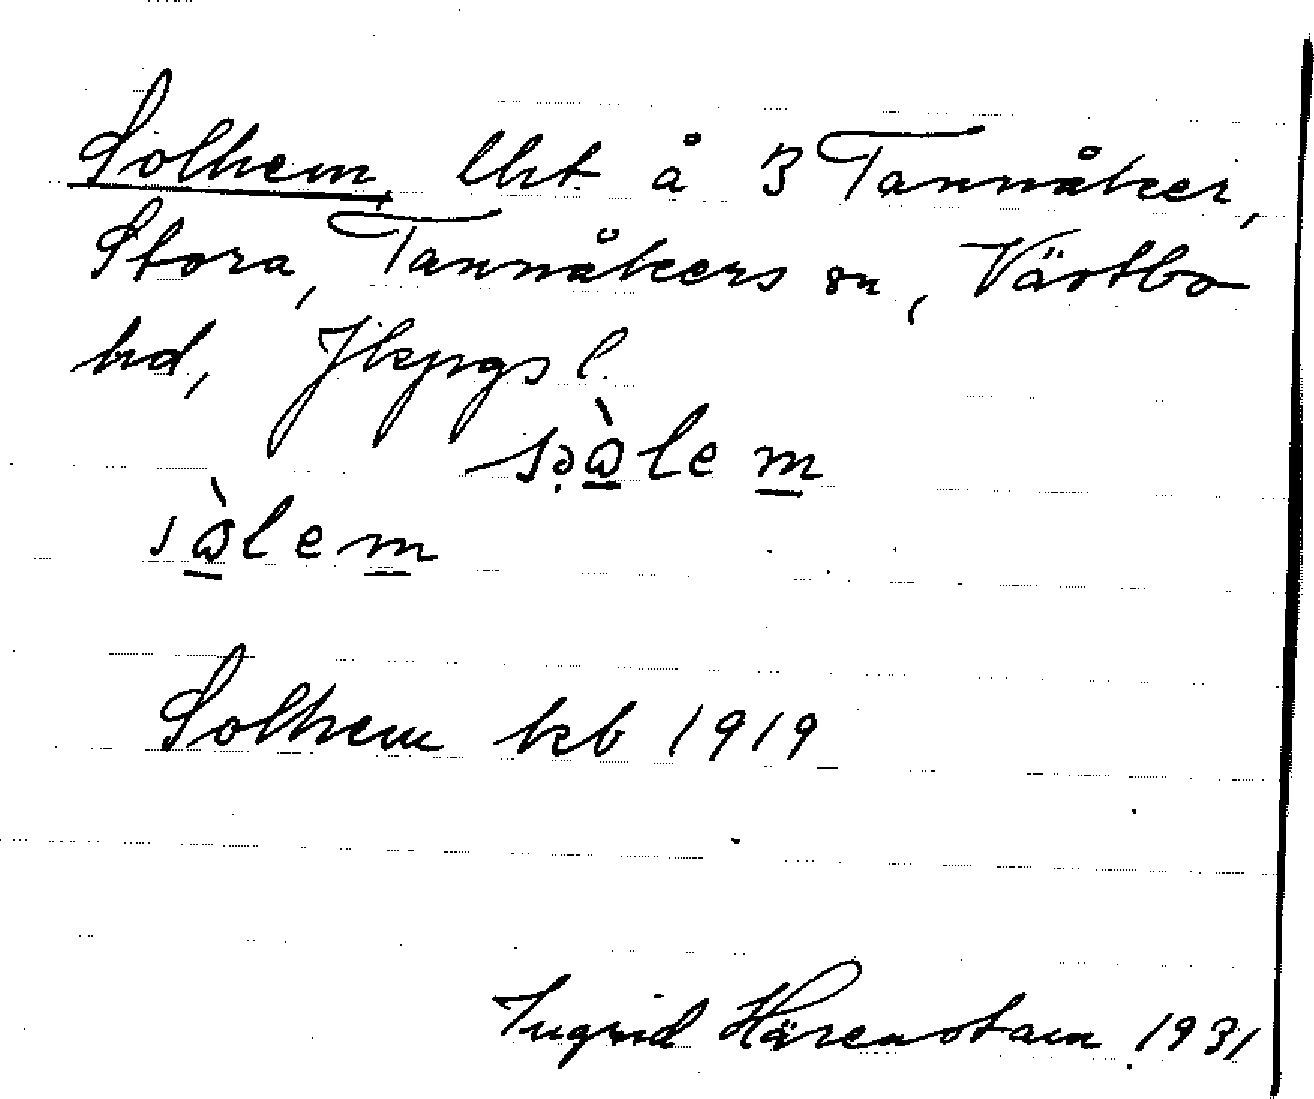 Solhem, lht å 3 Tannåker,
Stora, Tannåkers sn, Västbo
hd, Jkpgs l.
sə̣ɷ̀lem
sɷ̀lem
Solhem kb 1919
Ingrid Härenstam 1931